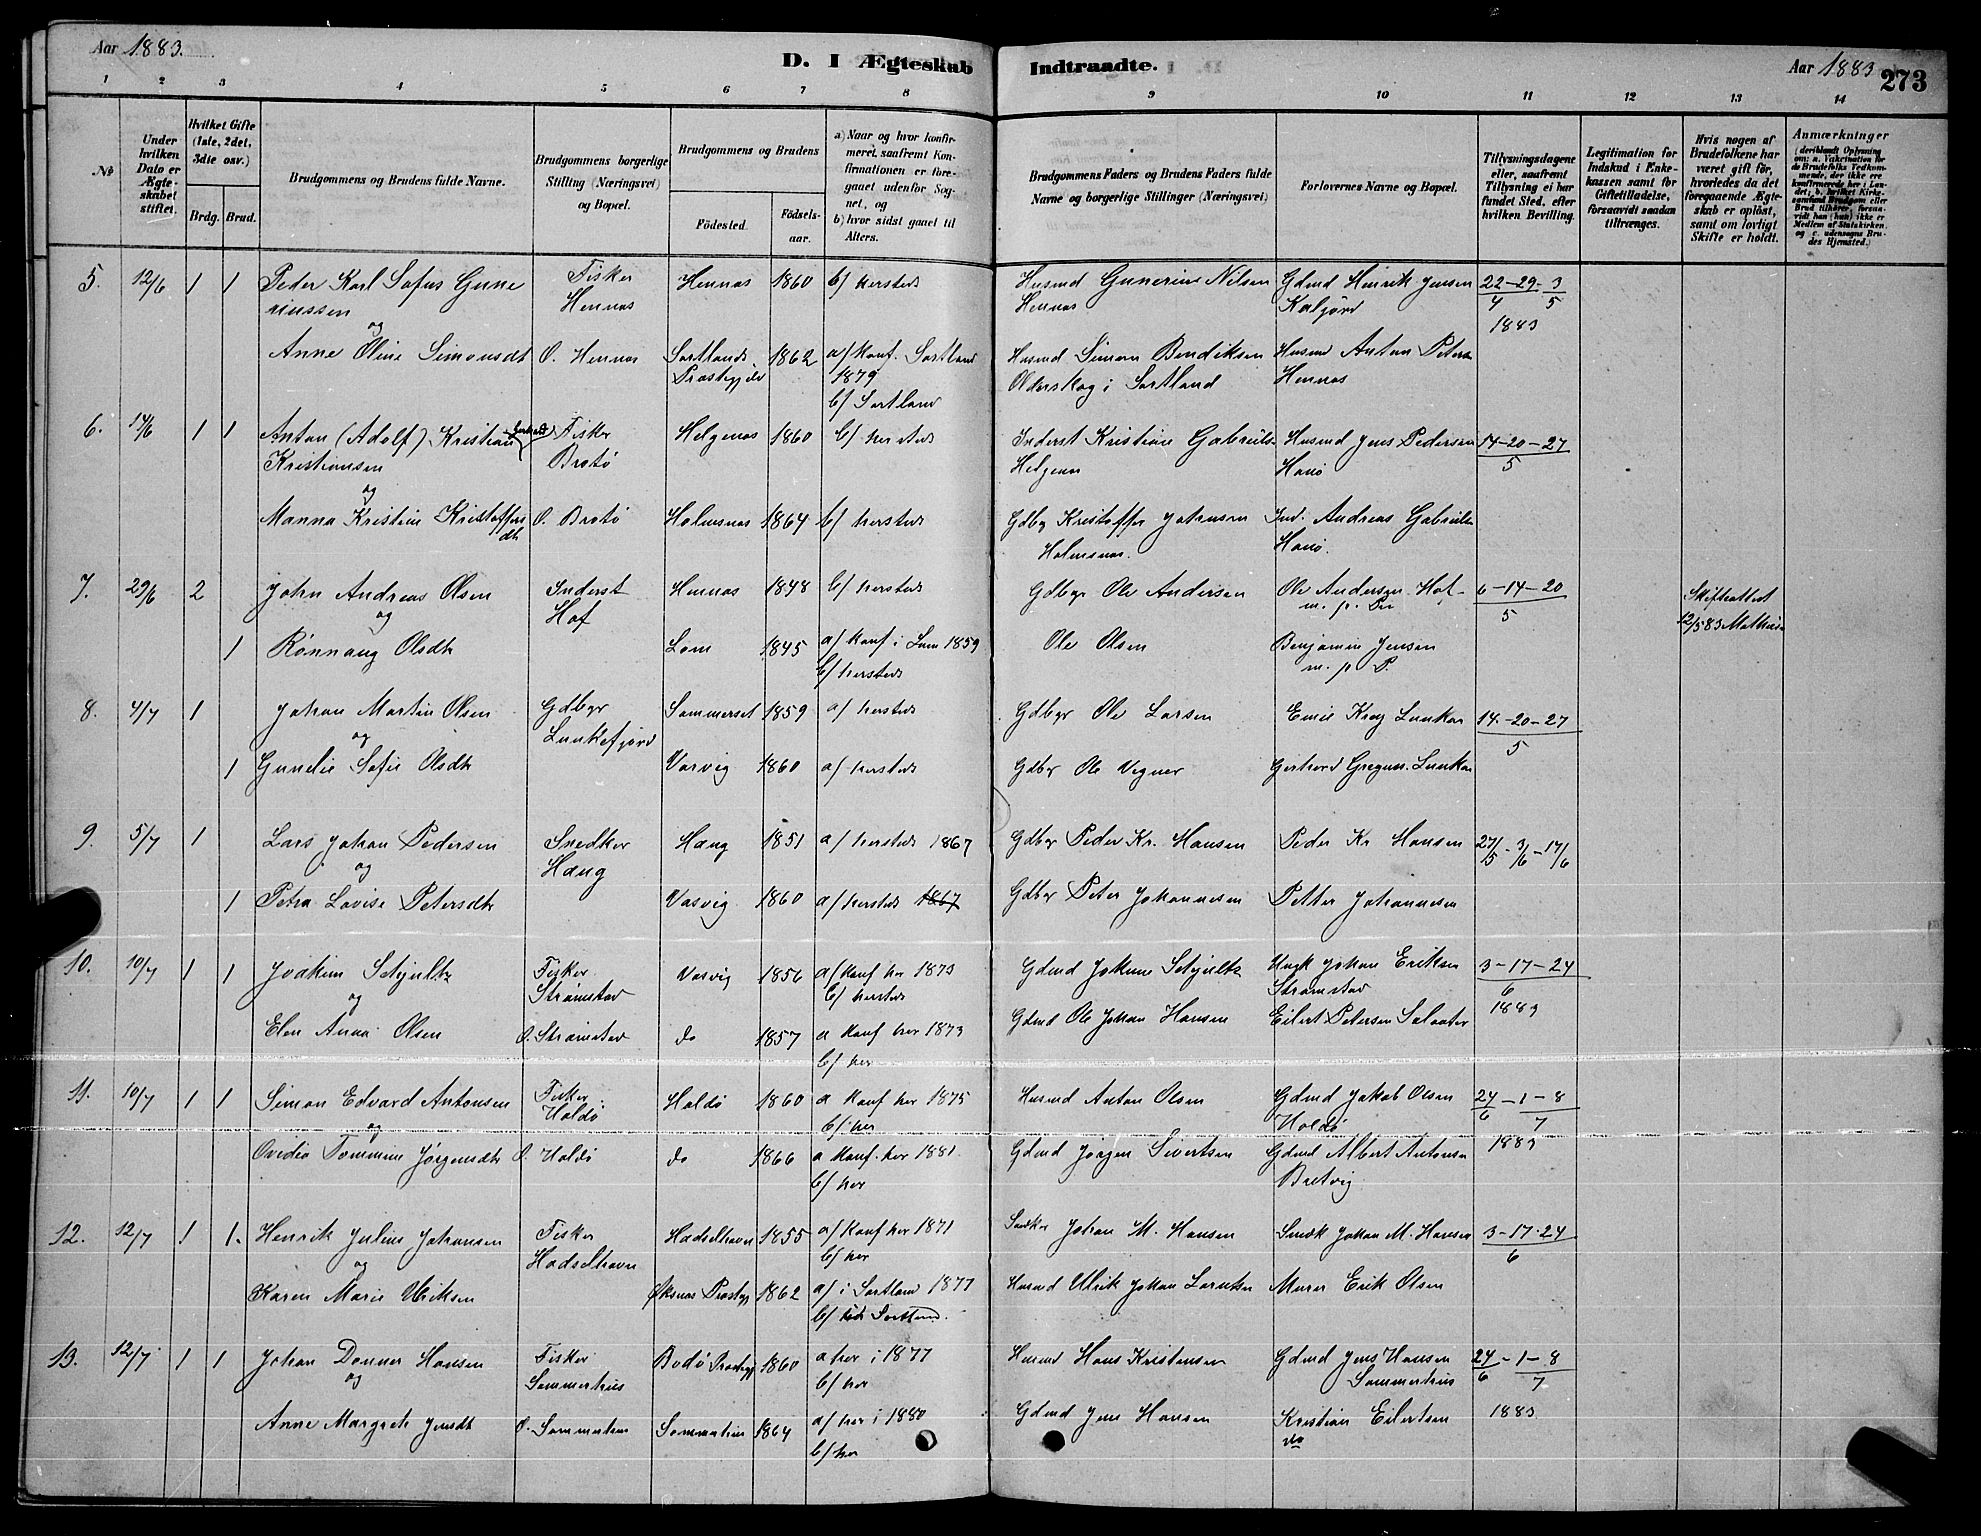 Aar 1883.
D. I Ægteskab Indtraadte.
Aar 1883
273
1 2 3 4 5 6 7 8 9 10 11 12 13 14
No
Under hvilken Dato er Ægteskabet stiftet.
Hvilket Gifte (1ste, 2det, 3die osv.)
Brdg. Brud.
Brudgommens og Brudens fulde Navne.
Brudgommens borgerlige Stilling (Næringsvei) og Bopæl.
Brudgommens og Brudens
Födested.
Födselsaar.
a) Naar og hvor konfirmeret, saafremt Konfirmationen er foregaaet udenfor Sognet, og
b) hvor sidst gaaet til Alters.
Brudgommens Faders og Brudens Faders fulde Navne og borgerlige Stillinger (Næringsvei)
Forlovernes Navne og Bopæl.
Tillysningsdagene eller, saafremt Tillysning ei har fundet Sted, efter hvilken Bevilling.
Legitimation for Indskud i Enkekassen samt for Giftetilladelse, forsaavidt saadan tiltrænges.
Hvis nogen af Brudefolkene har været gift för, hvorledes da det foregaaende Ægteskab er oplöst, samt om lovligt Skifte er holdt.
Anmærkninger (deriblandt Oplysning om: a. Vakcination for de Brudefolks Vedkommende, der ikke ere konfirmerede her i Landet; b. hvilket Kirkesamfund Brudgom eller Brud tilhörer, forsaavidt han (hun) ikke er Medlem af Statskirken, og c. udensogns Brudes Hjemsted.)
5. 12/6 1 1 Peder Karl Sofus Gune Fisker Hennes 1860 b/ hersteds Husmd Gunerius Nilsen Gdmd Hinrik Jensen 22-29- 3
riussen Hennes Hennes Kaljord 4 5
og 1883
Anne Oline Simonsdt O. Hennes Sortlands 1862 a/ Konf. Sortland Husmd Simon Bendiksen Husmd Anton Peters
Præstegjeld 1879 Olderskog i Sortland Hennes
b/ Sortland
6. 14/6 1 1 Anton (Adolf) Kristian Fisker Helgenes 1860 b/ hersteds Inderst Kristian Gabriels Husmd Jens Pedersen 14-20-27
Kristiansen Brotö Helgenes Hanö 5
og
Manna Kristine Kristoffers O. Brotö Holmsnes 1864 b/ hersteds Gdbr Kristoffer Johnsen Ind. Andreas Gabriels
dt Holmsnes. Hanö.
7. 29/6 2 John Andreas Olsen Inderst Hennes 1848 b/ hersteds Gdbgr Ole Andersen Ole Andersen Hof 6-14-20 Skifteattest
og Hof m. p. Pen 5 12/5 83 Mathiesen
1 Rönnaug Olsdt Lom 1845 a/ Konf i Lom 1859 Ole Olsen Benjamin Jensen
b/ hersteds m. p. P.
8. 4/7 1 Johan Martin Olsen Gdbgr Sommerset 1859 a/ hersteds Gdbgr Ole Larsen Emil Krog Lunkan 14-20-27
og Lunkefjord 5
1 Gunelie Sofie Olsdt Vasvig 1860 a/ hersteds Gdbgr Ole Vegner Gerhard Gregus. Lunkan
9. 5/7 1 Lars Johan Pedersen Snedker Haug 1851 a/ hersteds 1867 Gdbgr Peder Kr. Hansen Peder Kr Hansen 27/5 - 3/6 - 17/6
og Haug
1 Petra Lovise Petersdt Vasvig 1860 a/ hersteds 1867 Gdbgr Peter Johannesen Petter Johannesen
10. 10/7 1 1 Joakim Schjultz Fisker Vasvig 1856 a/ Konf her 1873 Gdmd Jokum Schjultz Ungk Johan Eriksen 3-17-24
og Strömstad b/ hersteds Strömstad 6
Elen Anna Olsen O. Strömstad do 1857 a Konf her 1873 Gdmd Ole Johan Hansen Eilert Petersen Salaater 1883
b/ her
11. 10/7 1 1 Simon Edvard Antonsen Fisker Holdö 1860 a Konf her 1875 Husmd Anton Olsen Gdmd Jakob Olsen 24 - 1 - 8
og Holdö b/ her Holdö 6 7
Ovidia Tommine Jörgensdt O. Holdö do 1866 a Konf. her 1881. Gdmd Jörgen Sivertsen Gdmd Albert Antonsen 1883
b/ her Bretvig
12. 12/7 1 1. Henrik Julius Johansen Fisker Hadselhavn 1855 a/ Konf her 1871 Snedker Johan M. Hansen Snedk Johan M. Hansen 3-17-24
og Hadselhavn b/ her 6
Karen Marie Ulriksen Øksnes Præstegj 1862 a/ i Sortland 1877 Husmd Ulrik Johan Larntzen Murer Erik Olsen
b/ Sortland.
13. 12/7 1 1 Johan Donner Hansen Fisker Bodö Præstegj 1860 a her i 1877 Husmd Hans Kristensen Gdmd Jens Hansen 24 - 1 - 8
og Sommerhus b/ her Sommerhus 6 7
Anne Margrete Jensdt O. Sommerhus Sommerhus 1864 a/ her i 1880 Gdmd Jens Hansen Kristian Eilertsen 1883
b/ her do